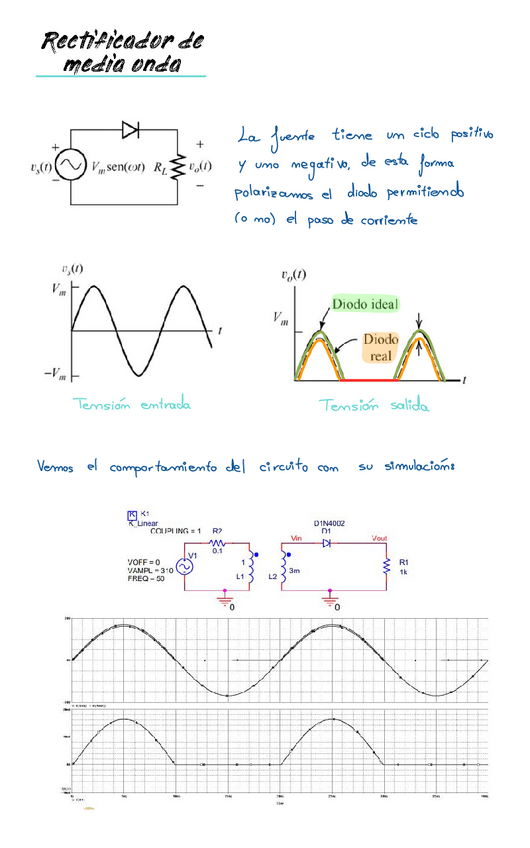 Rectificador de
media onda
+
+
v_s(t)
V_m sen(ωt)
R_L
v_o(t)
−
−
La fuente tiene un ciclo positivo
y uno negativo, de esta forma
polarizamos el diodo permitiendo
(o no) el paso de corriente
v_s(t)
V_m
t
−V_m
Tensión entrada
v_o(t)
Diodo ideal
V_m
Diodo
real
t
Tensión salida
Vemos el comportamiento del circuito con su simulación:
K K1
K_Linear
COUPLING = 1
R2
0.1
V1
VOFF = 0
VAMPL = 310
FREQ = 50
1
L1
0
D1N4002
D1
Vin
Vout
L2
3m
R1
1k
0